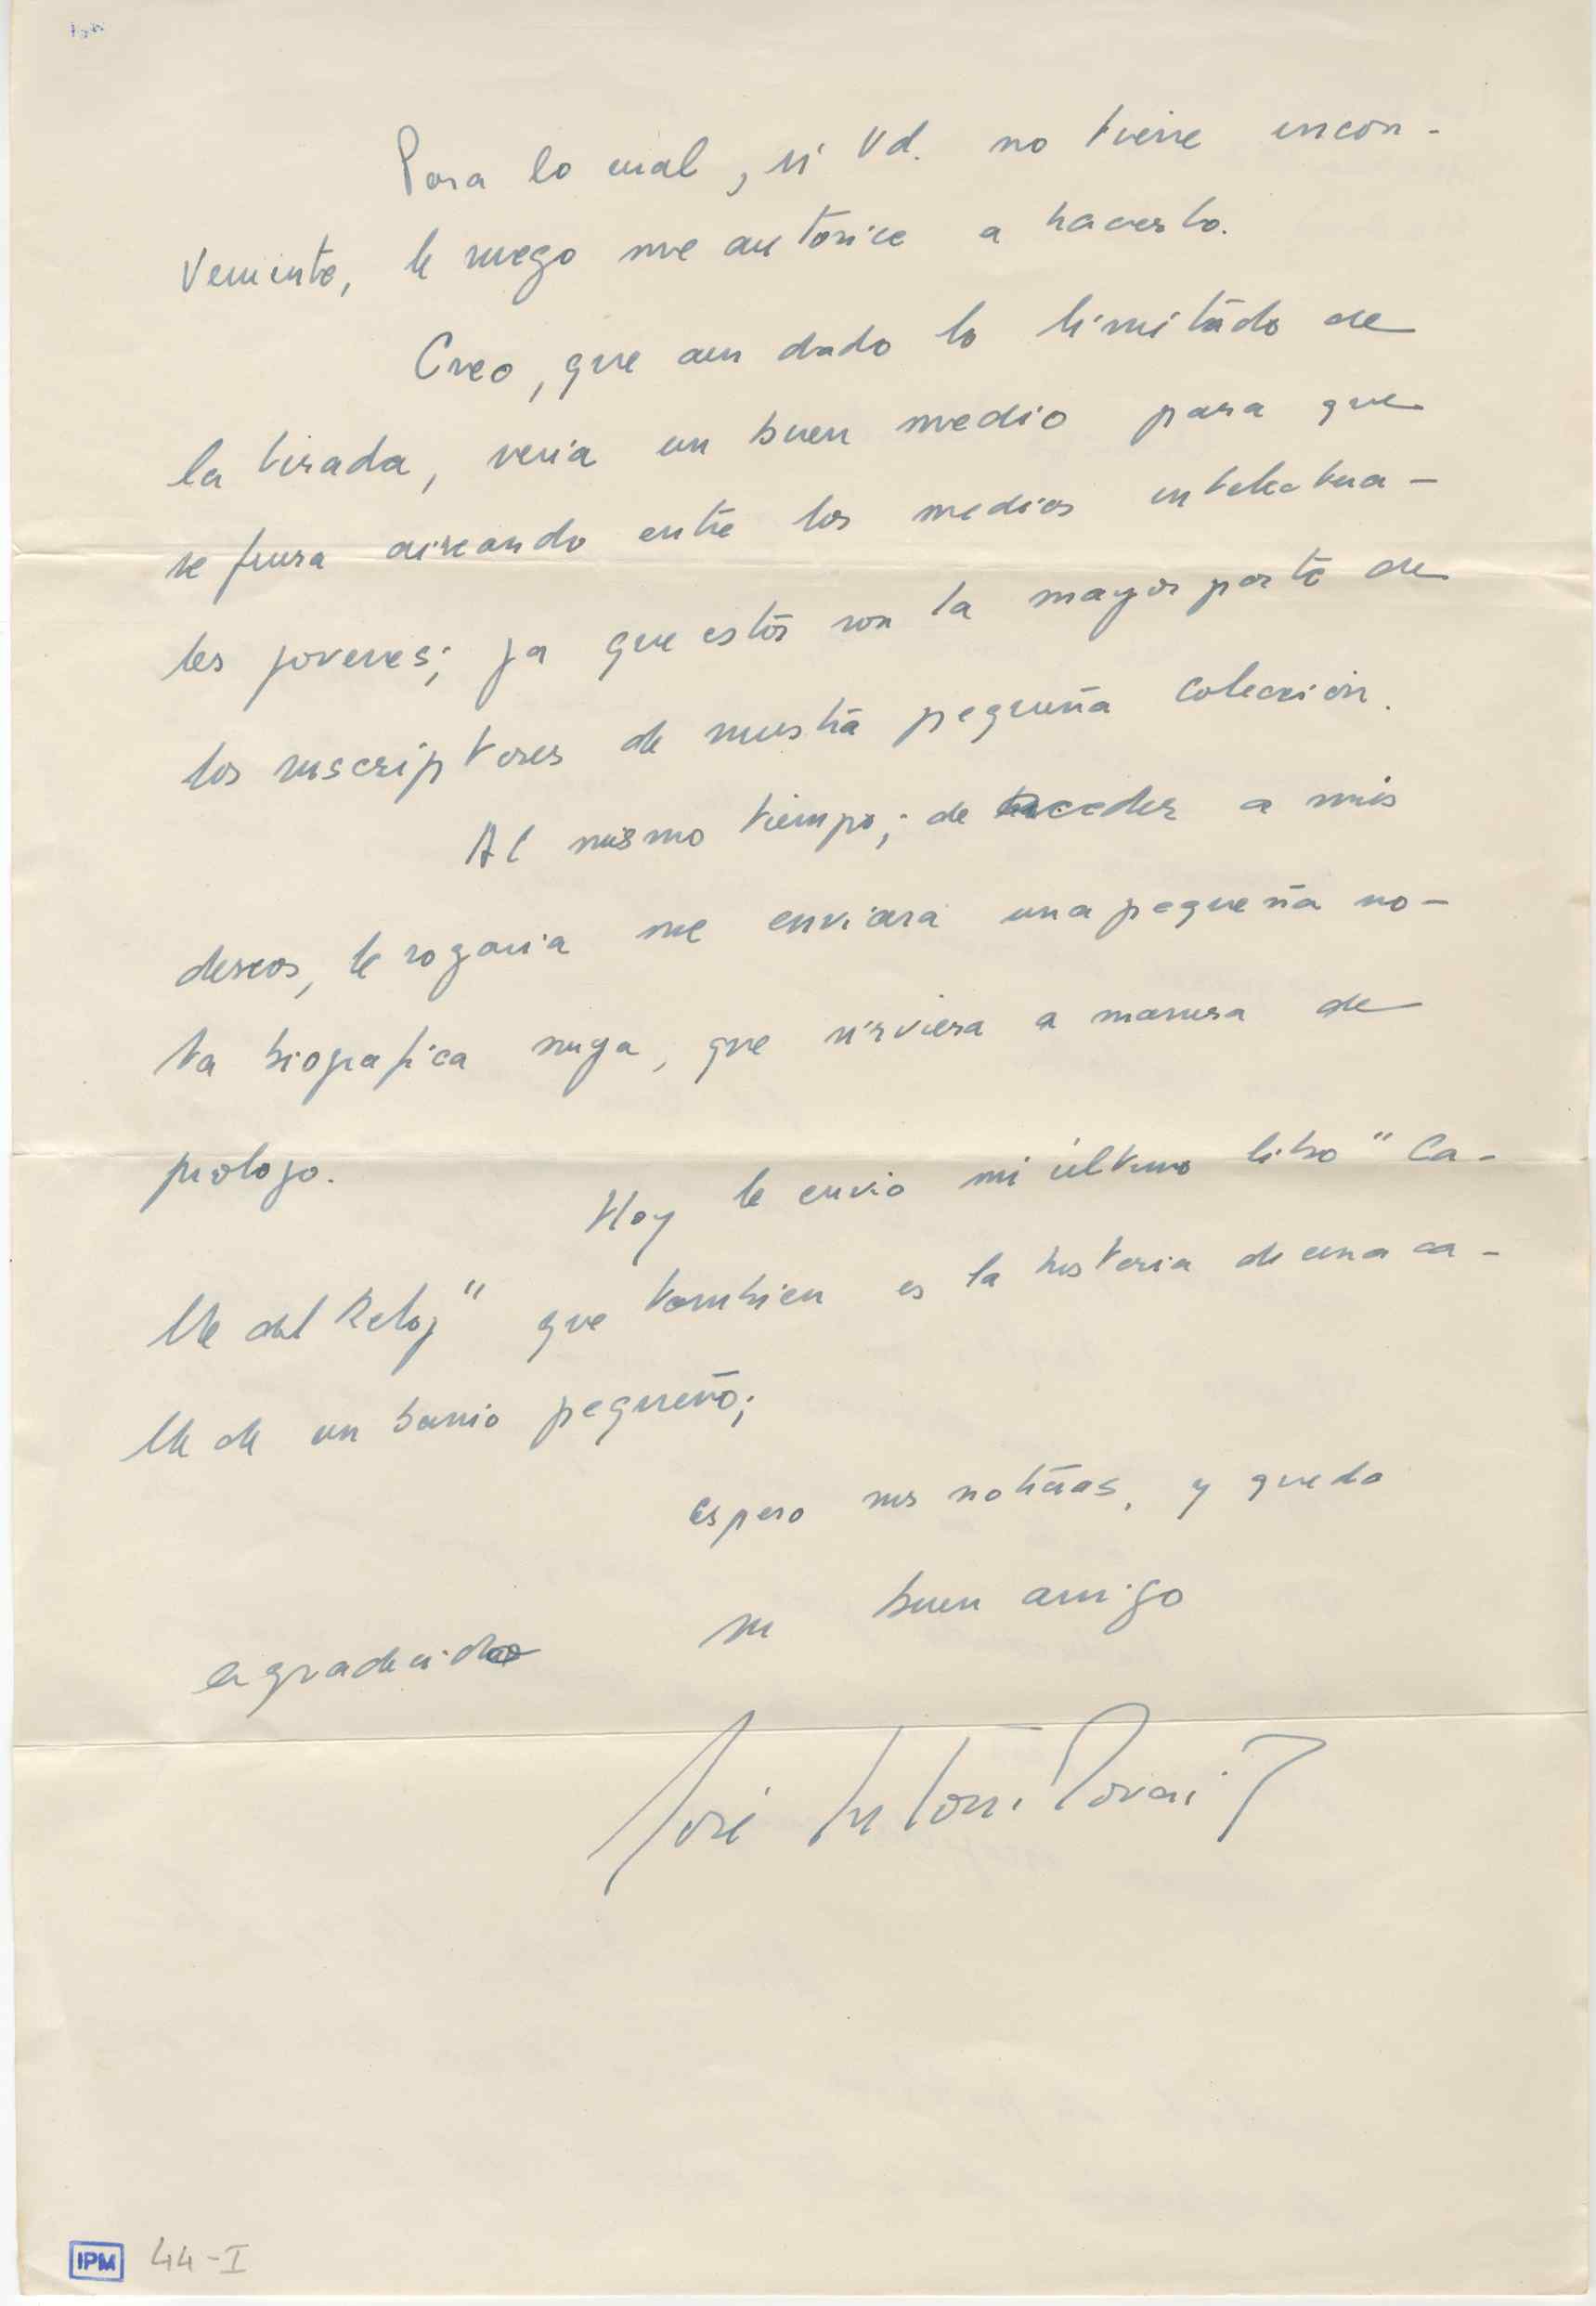 Para lo cual, si Vd. no tiene incon-
veniente, le ruego me autorice a hacerlo.
Creo, que aun dado lo limitado de
la tirada, seria un buen medio para que
se fuera aireando entre los medios intelectua-
les jovenes; ya que estos son la mayor parte de
los suscriptores de nuestra pequeña coleccion.
Al mismo tiempo; de acceder a mis
deseos, le rogaria me enviara una pequeña no-
ta biografica suya, que sirviera a manera de
prologo.
Hoy le envio mi último libro "Ca-
lle del Reloj" que tambien es la historia de una ca-
lle de un barrio pequeño;
espero sus noticias, y quedo
agradecido su buen amigo
José Antoni
IPM 44-I